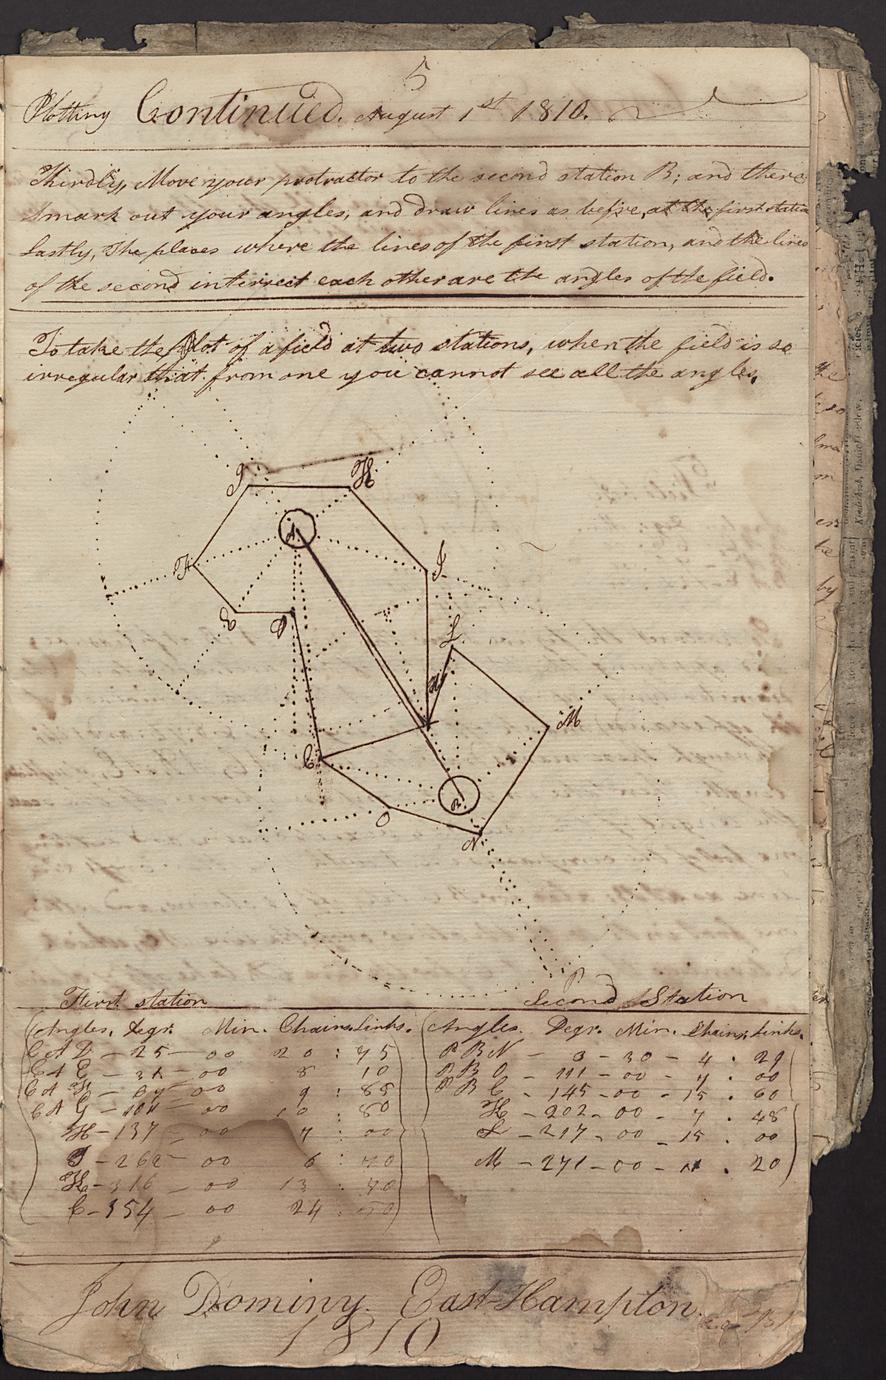 5
Plotting Continued. August 1st 1810.
Thirdly, Move your protractor to the second station B; and there
mark out your angles, and draw lines as before, at the first station
Lastly, The places where the lines of the first station, and the lines
of the second intersect each other are the angles of the field.
To take the Plot of a field at two stations, when the field is so
irregular that from one you cannot see all the angles,
G
H
A
F
I
E
D
L
K
M
C
B
O
N
P
First station
Second Station
Angles. Degr. Min. Chains. Links.
Angles. Degr. Min. Chains, Links.
C A D - 25 - 00 20 : 75
C A E - 00 8 10
C A F - 00 9 : 85
C A G - 00 10 : 80
H - 137 - 00 7 : 00
I - 262 - 00 6 : 70
K - 316 - 00 13 : 70
C - 354 - 00 24 :
P B N - 0 - 30 - 4 . 29
P B O - 111 - 00 - 7 . 00
P B C - 145 - 00 - 15 . 60
K - 202 - 00 - 7 . 48
L - 217 - 00 - 15 . 00
M - 271 - 00 - 11 . 20
John Dominy. East-Hampton.
1810